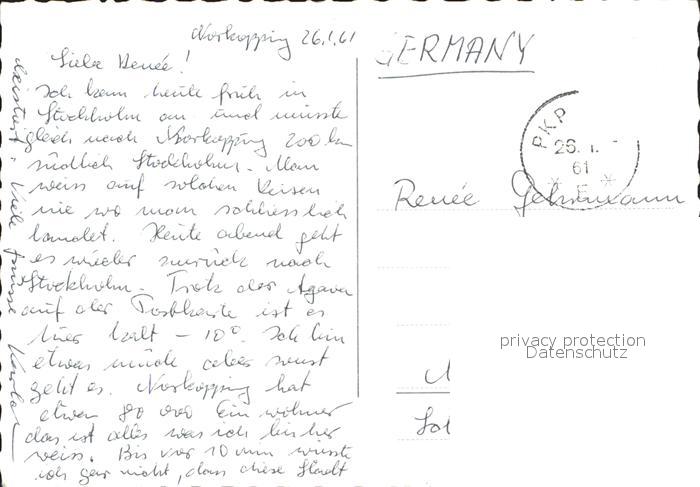 Norkopping 26.1.61
Liebe Renée!
Ich kam heute früh in
Stockholm an und musste
gleich nach Norkopping 200 km
südlich Stockholm. Man
weiss auf solchen Reisen
nie wo man schliesslich
landet. Heute abend geht
es wieder zurück nach
Stockholm. Trotz der Agava
auf der Postkarte ist es
hier kalt - 10°. Ich bin
etwas müde aber sonst
geht es. Norkopping hat
etwa 90 000 Einwohner
das ist alles was ich bisher
weiss. Bis vor 10 min wusste
ich gar nicht, dass diese Stadt
existiert. Viele Grüsse
GERMANY
PKP
26. 1. -
61
* F *
Renée Gehrmann
privacy protection
Datenschutz